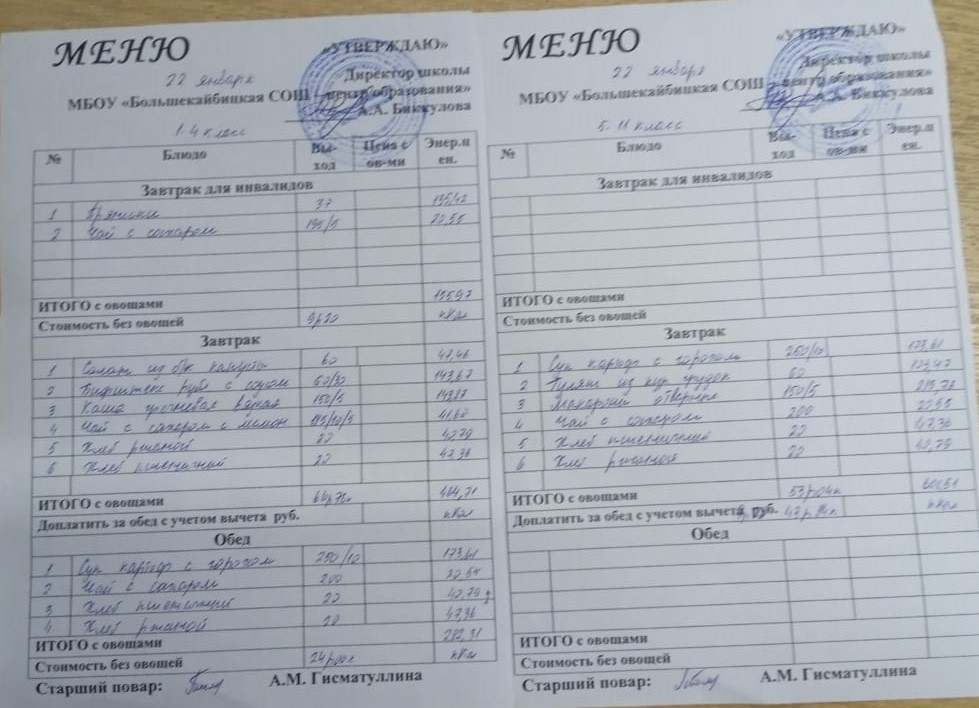 МЕНЮ
«УТВЕРЖДАЮ»
22 января
Директор школы
МБОУ «Большекайбицкая СОШ – центр образования»
А.А. Биккулова
1-4 класс
№ Блюдо Вы-ход Цена с ов-ми Энер.ц ен.
Завтрак для инвалидов
1 Пряники 37 135,42
2 Чай с сахаром 195/5 20,55
ИТОГО с овощами 155,97
Стоимость без овощей 9р20 кКал
Завтрак
1 Салат из б/к капусты 60
2 Бифштекс руб с соусом 60/30 143,67
3 Каша гречневая вязкая 150/5
4 Чай с сахаром с лимон 195/10/5 41,60
5 Хлеб ржаной 20 40,79
6 Хлеб пшеничный 20 47,36
ИТОГО с овощами 464,71
Доплатить за обед с учетом вычета руб. кКал
Обед
1 Суп картоф с горохом 250/10 173,61
2 Чай с сахаром 200 20,55
3 Хлеб пшеничный 20 40,79
4 Хлеб ржаной 20 47,36
ИТОГО с овощами 282,31
Стоимость без овощей 24р00к кКал
Старший повар: А.М. Гисматуллина
МЕНЮ
«УТВЕРЖДАЮ»
22 января
Директор школы
МБОУ «Большекайбицкая СОШ – центр образования»
А.А. Биккулова
5-11 класс
№ Блюдо Вы-ход Цена с ов-ми Энер.ц ен.
Завтрак для инвалидов
ИТОГО с овощами
Стоимость без овощей
Завтрак
1 Суп картоф с горохом 250/10 173,61
2 Гуляш из кур грудок 60 123,47
3 Макароны отварные 150/5
4 Чай с сахаром 200 20,55
5 Хлеб пшеничный 20 47,36
6 Хлеб ржаной 20 40,79
ИТОГО с овощами 53р04к
Доплатить за обед с учетом вычета руб. кКал
Обед
ИТОГО с овощами
Стоимость без овощей
Старший повар: А.М. Гисматуллина